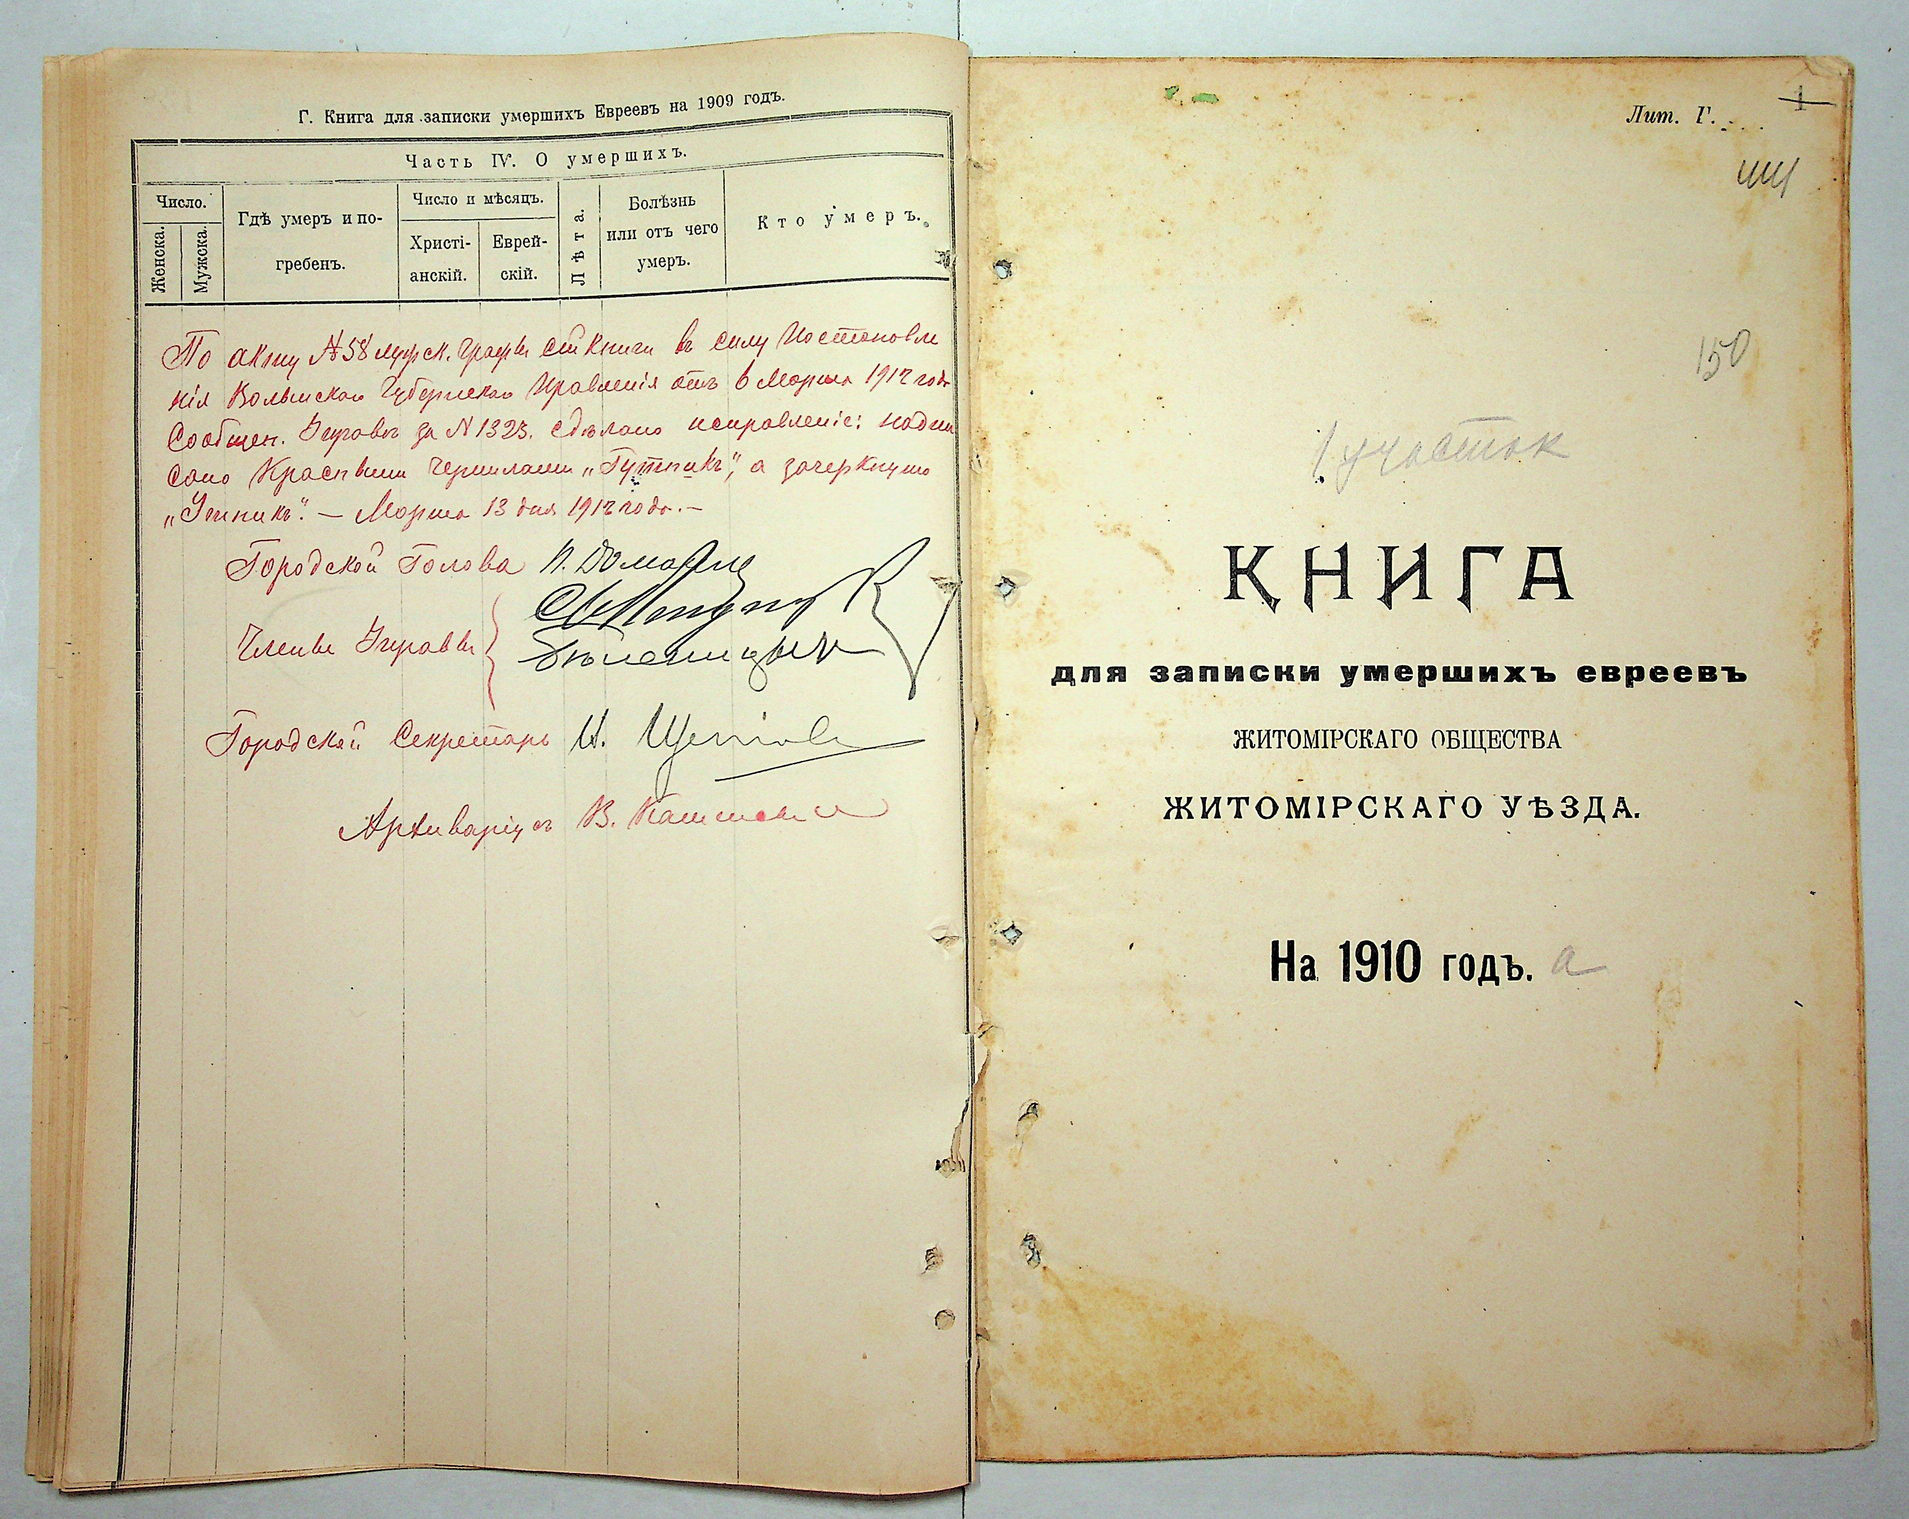 Г. Книга для записки умершихъ Евреевъ на 1909 годъ.
Часть IV. О умершихъ.
Число.
Женска.
Мужска.
Гдѣ умеръ и по-
гребенъ.
Число и мѣсяцъ.
Христі-
анскій.
Еврей-
скій.
Лѣта.
Болѣзнь
или отъ чего
умеръ.
Кто умеръ.
По акту №58 мужск. графы сей книги въ силу Постановле
нія Волынскаго Губернскаго Правленія отъ 6 Марта 1912 года
Сообщен. Управѣ за №1323. сдѣлано исправленіе: надпи
сано Красными Чернилами „Гутникъ", а зачеркнуто
„Утникъ". — Марта 13 дня 1912 года. —
Городской Голова
Члены Управы
Городской Секретарь И.
Архиваріусъ В.
Лит. Г.
1
150
1 участок
КНИГА
для записки умершихъ евреевъ
ЖИТОМІРСКАГО ОБЩЕСТВА
ЖИТОМІРСКАГО УѢЗДА.
На 1910 годъ. а